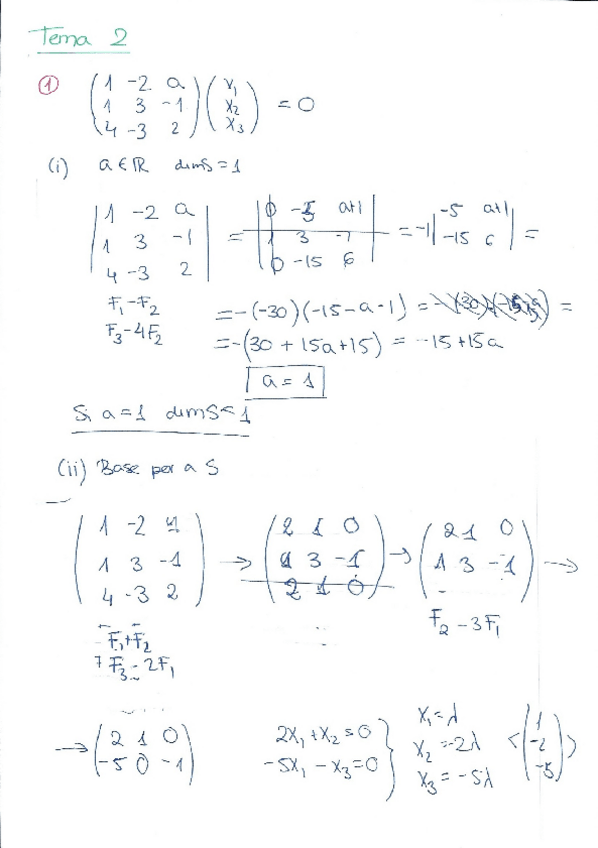 Tema 2
① (1 -2 a; 1 3 -1; 4 -3 2) (x₁; x₂; x₃) = 0
(i) a ∈ ℝ dim S = 1
|1 -2 a; 1 3 -1; 4 -3 2| = |0 -5 a+1; 1 3 -1; 0 -15 6| = -1 |-5 a+1; -15 6| =
F₁-F₂
F₃-4F₂
= -(-30)(-15-a-1) =
= -(30 + 15a + 15) = -15 + 15a
a = 1
Si a=1 dim S = 1
(ii) Base per a S
(1 -2 1; 1 3 -1; 4 -3 2) → (2 1 0; 1 3 -1; 2 1 0) → (2 1 0; 1 3 -1) →
F₁+F₂
F₃-2F₁
F₂ - 3F₁
→ (2 1 0; -5 0 -1)
2x₁ + x₂ = 0
-5x₁ - x₃ = 0
x₁ = λ
x₂ = -2λ
x₃ = -5λ
<(1; -2; -5)>